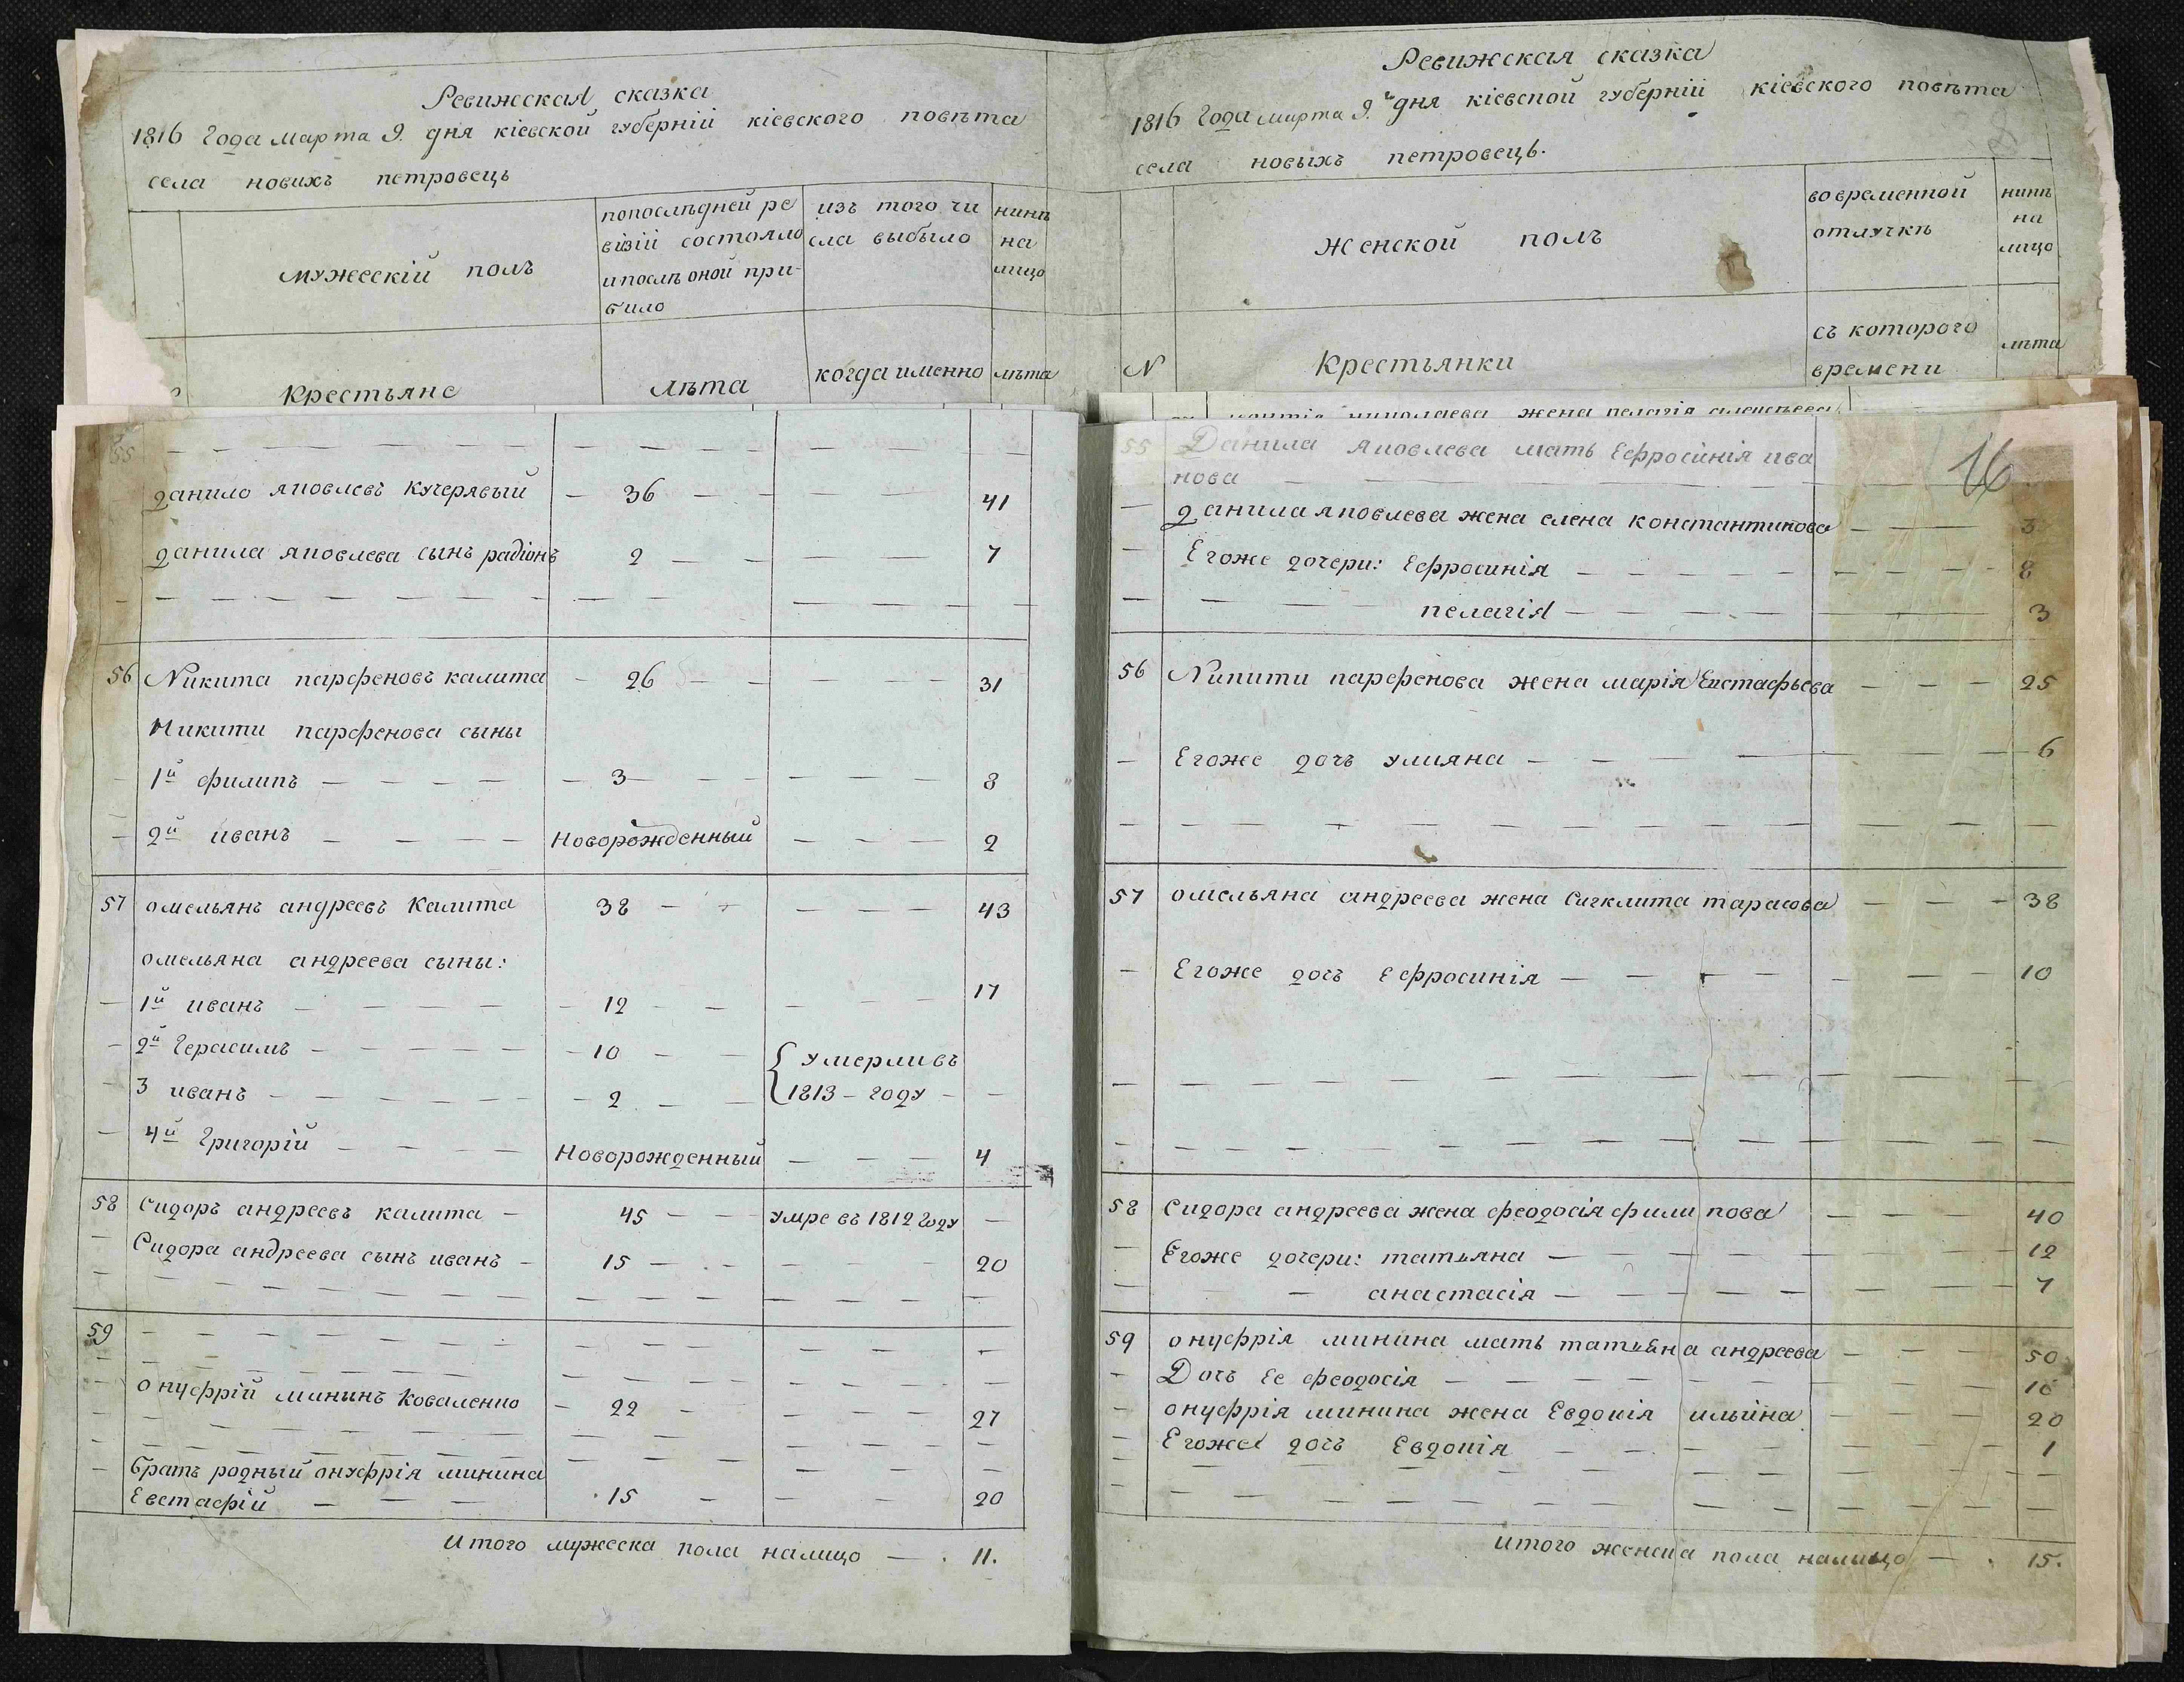 Ревижская сказка
1816 года марта 9. дня кіевской губерніи кіевского повѣта
села новихъ петровець
мужескій полъ
попослѣдней ре
візіи состояло
ипослѣ оной при-
било
изъ того чи
сла выбыло
нинѣ
на
лицо
Крестьяне
лѣта
когда именно
лѣта
Ревижская сказка
1816 года марта 9.ъ дня кіевской губерніи кіевского повѣта
села новыхъ петровець.
женской полъ
во временной
отлучкѣ
нинѣ
на
лицо
N
Крестьянки
съ которого
времени
лѣта
55
данило яковлевъ кучерявый — 36 — 41
данила яковлева сынъ радіонъ 2 — 7
56 Никита парфеновъ калита — 26 — 31
Никити парфенова сыны
1й филипъ — 3 — 8
2й иванъ — Новорожденный — 2
57 омельянъ андреевъ Калита 38 — 43
омельяна андреева сыны:
1й иванъ — 12 — 17
2й Герасимъ — 10 — умерли въ
3 иванъ — 2 — 1813 - году —
4й Григорій — Новорожденный — 4
58 Сидоръ андреевъ калита — 45 — умре въ 1812 году —
Сидора андреева сынъ иванъ — 15 — 20
59
онуфрій мининъ Коваленко — 22 — 27
братъ родный онуфрія минина
Евстафій — 15 — 20
итого мужеска пола налицо — 11.
жена пелагія
16
55 Данила яковлева мать Ефросинія ива
нова —
данила яковлева жена елена константинова —
Егоже дочери: Ефросинія — 8
пелагія — 3
56 Никити парфенова жена марія Евстафьева — 25
Егоже дочъ улияна — 6
57 омельяна андреева жена Сигклита тарасова — 38
Егоже дочъ Ефросинія — 10
58 Сидора андреева жена феодосія филипова — 40
Егоже дочери: татьяна — 12
анастасія — 7
59 онуфрія минина мать татьяна андреева — 50
Дочъ Ее феодосія — 10
онуфрія минина жена Евдокія ильина — 20
Егоже дочъ Евдокія — 1
итого женска пола налицо — 15.